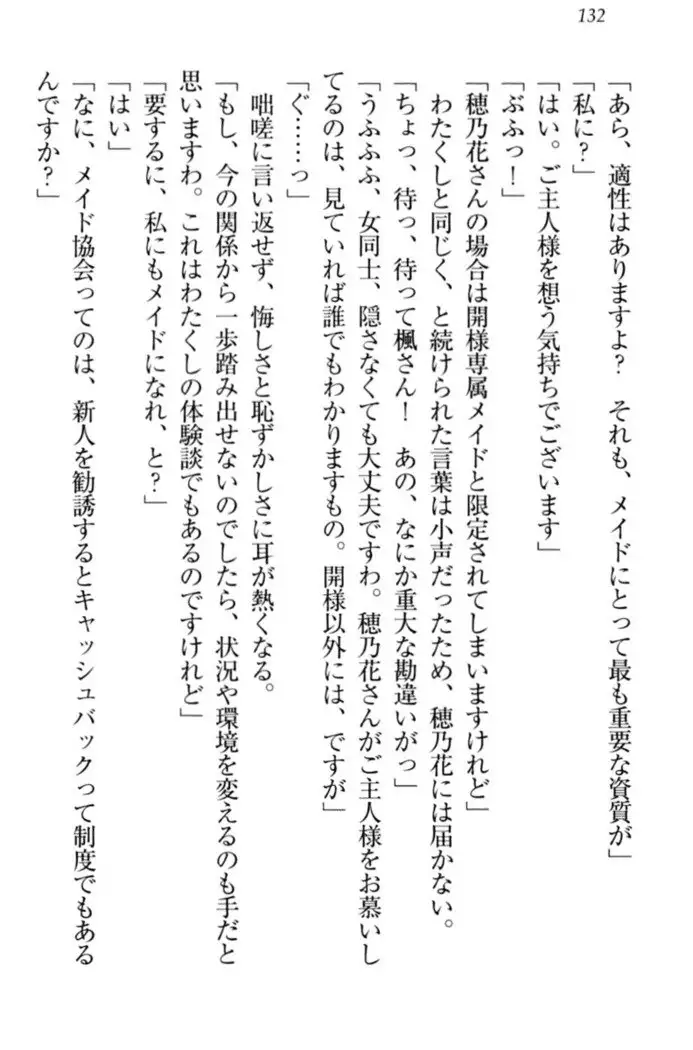 132
「あら、適性はありますよ?　それも、メイドにとって最も重要な資質が」
「私に?」
「はい。ご主人様を想う気持ちでございます」
「ぶふっ!」
「穂乃花さんの場合は開様専属メイドと限定されてしまいますけれど」
わたくしと同じく、と続けられた言葉は小声だったため、穂乃花には届かない。
「ちょっ、待っ、待って楓さん!　あの、なにか重大な勘違いがっ」
「うふふふ、女同士、隠さなくても大丈夫ですわ。穂乃花さんがご主人様をお慕いし
てるのは、見ていれば誰でもわかりますもの。開様以外には、ですが」
「ぐ……っ」
咄嗟に言い返せず、悔しさと恥ずかしさに耳が熱くなる。
「もし、今の関係から一歩踏み出せないのでしたら、状況や環境を変えるのも手だと
思いますわ。これはわたくしの体験談でもあるのですけれど」
「要するに、私にもメイドになれ、と?」
「はい」
「なに、メイド協会ってのは、新人を勧誘するとキャッシュバックって制度でもある
んですか?」